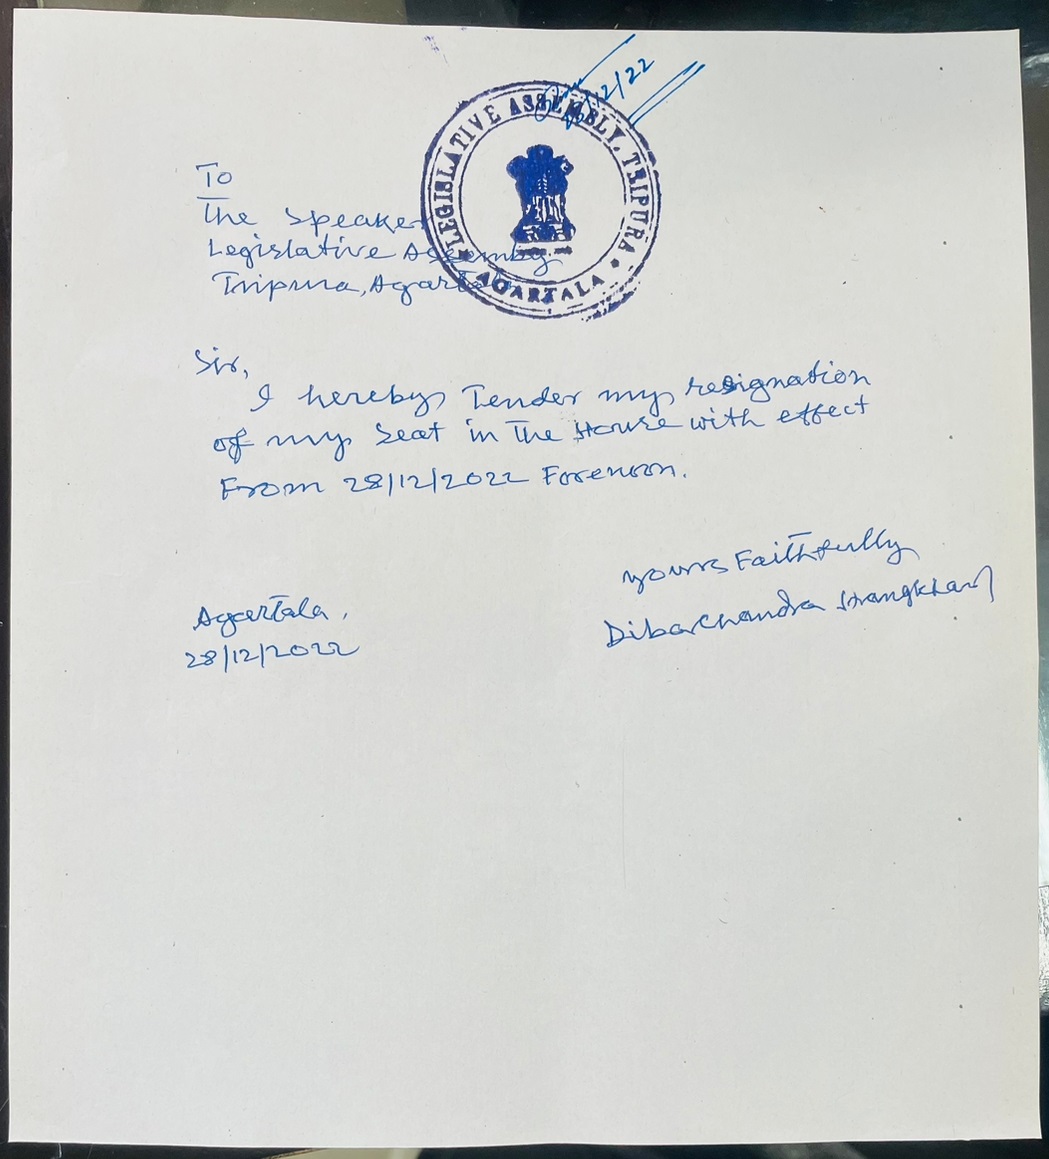 12/22
LEGISLATIVE ASSEMBLY, TRIPURA
AGARTALA
To
The Speaker
Legislative Assembly
Tripura, Agartala
Sir,
I hereby Tender my resignation
of my seat in The House with effect
From 28/12/2022 Forenoon.
Yours Faithfully
Dibachandra Hrangkhawl
Agartala,
28/12/2022